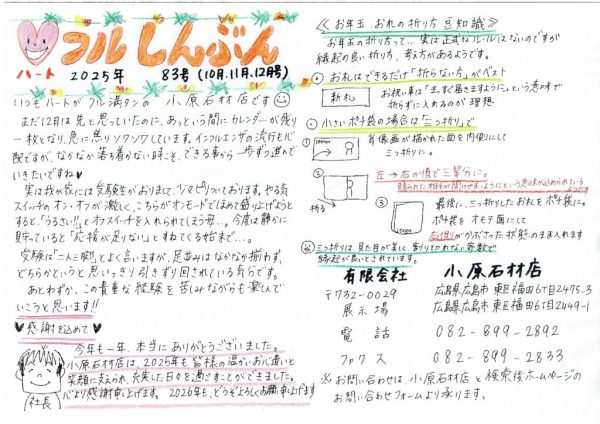 ハート
フルしんぶん
2025年 83号(10月.11月.12月号)
いつもハートがフル満タンの 小原石材店です
まだ12月は先と思っていたのに、あっという間にカレンダーが残り
一枚となり、急に焦りソワソワしています。インフルエンザの流行も心
配ですが、なかなか落ち着かない時こそ、できる事から一歩ずつ進めて
いきたいですね♥
実は我が家には受験生がおりまして、少々ピリついております。やる気
スイッチのオン・オフが激しく、こちらがオンモードでほめて盛り上げようと
すると、「うるさい!!」とオフスイッチを入れられてしまう毎…。今度は静かに
見守っていると「応援が足りない」とすねてくる始末で…。
受験は「二人三脚」とよく言いますが、足並みはなかなか揃わず、
どちらかというと思いっきり引きずり回されている気分です。
あとわずか、この貴重な経験を苦しみながらも楽しんで
いこうと思います!!
♥感謝を込めて♥
今年も一年、本当にありがとうございました。
小原石材店は、2025年も皆様の温かいお心遣いと
笑顔に支えられ、充実した日々を過ごすことができました。
心より感謝申し上げます。2026年も、どうぞよろしくお願い申し上げます
社長
≪お年玉 お札の折り方 豆知識≫
お年玉の折り方って… 実は正式なルールはないのですが
縁起の良い折り方、考え方があるようです。
お札はできるだけ「折らない方」がベスト
新札
お祝い事は「まっすぐ届きますように」という意味で
折らずに入れるのが理想
小さいポチ袋の場合は「三つ折り」で
① 肖像画が描かれた面を内側にして
三つ折りに。
② 左→右の順で三等分に。
折る
③ 最後に、三つ折りしたお札をポチ袋に。
ポチ袋をオモテ面にして
左側がかぶさった状態のまま入れます
三つ折りは、見た目が美しく、割り切れない奇数で
縁起が良いとされています。
有限会社 小原石材店
〒732-0029 広島県広島市東区福田6丁目2495-3
展示場 広島県広島市東区福田6丁目2449-1
電話 082-899-2892
ファクス 082-899-2833
※お問い合わせは、小原石材店と検索後ホームページの
お問い合わせフォームより承ります。